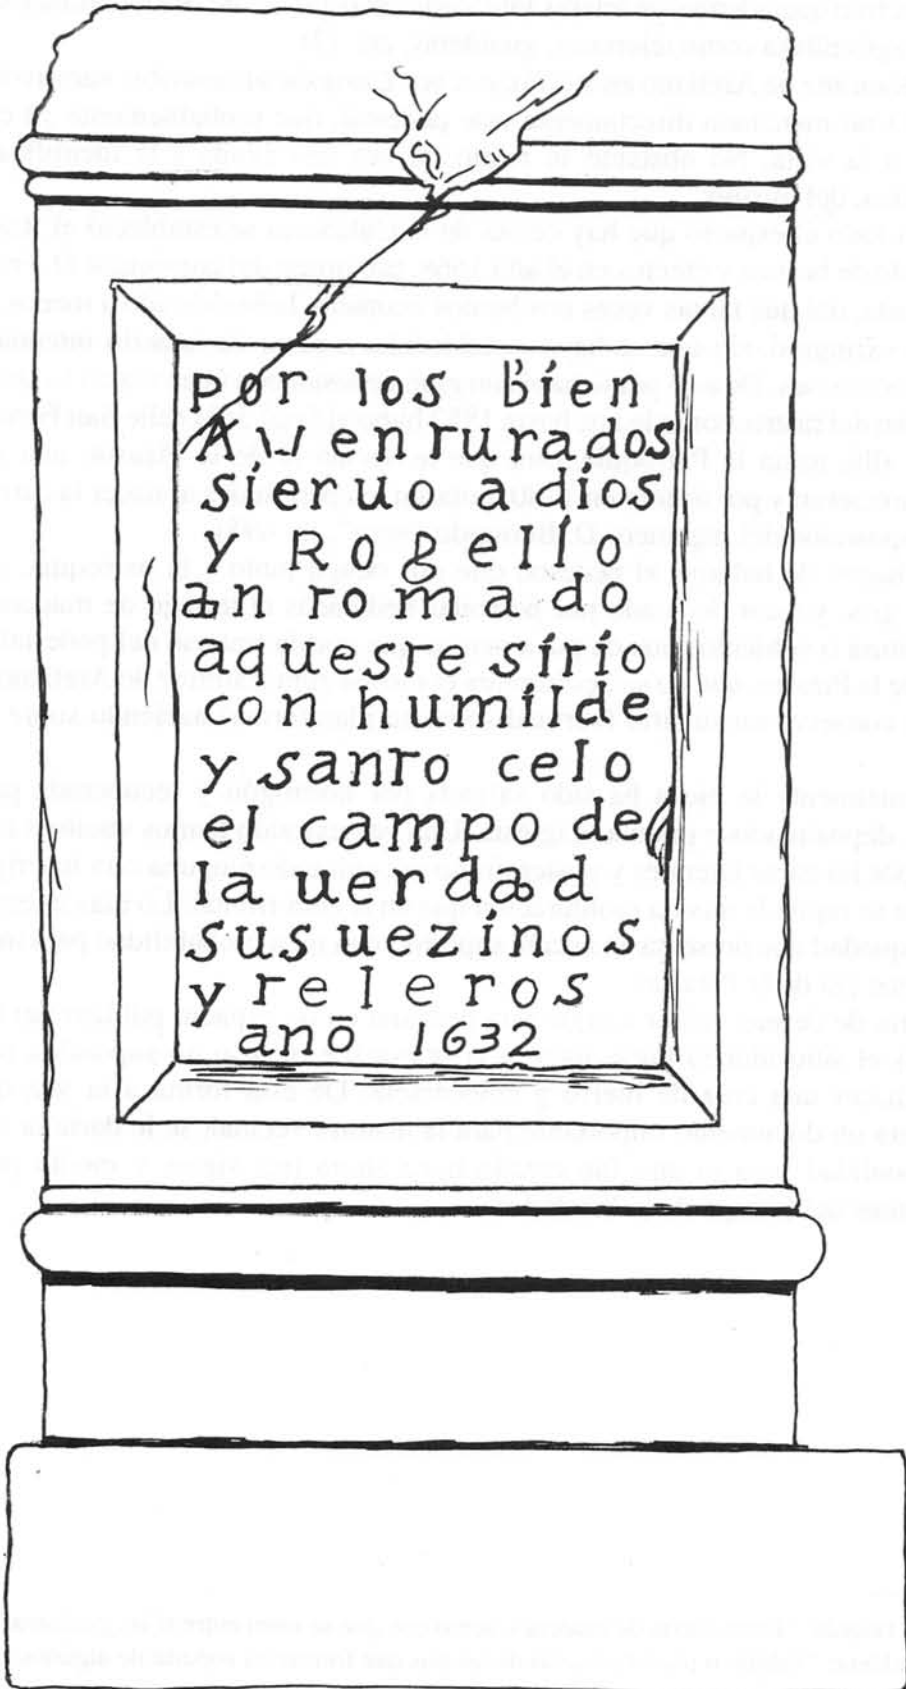 por los bien
A.V enturados
sieruo a dios
y Ropello
an tomado
aqueste sitio
con humilde
y santo celo
el campo de
la uerdad
sus uezinos
y teleros
anõ 1632